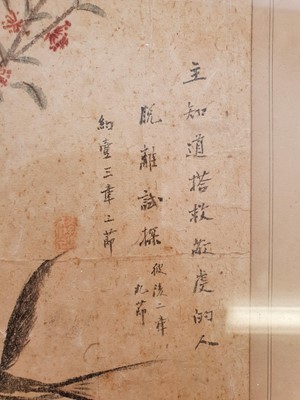 主知道搭救敬虔的人
脫離試探
彼後二章
九節
約壹三章節